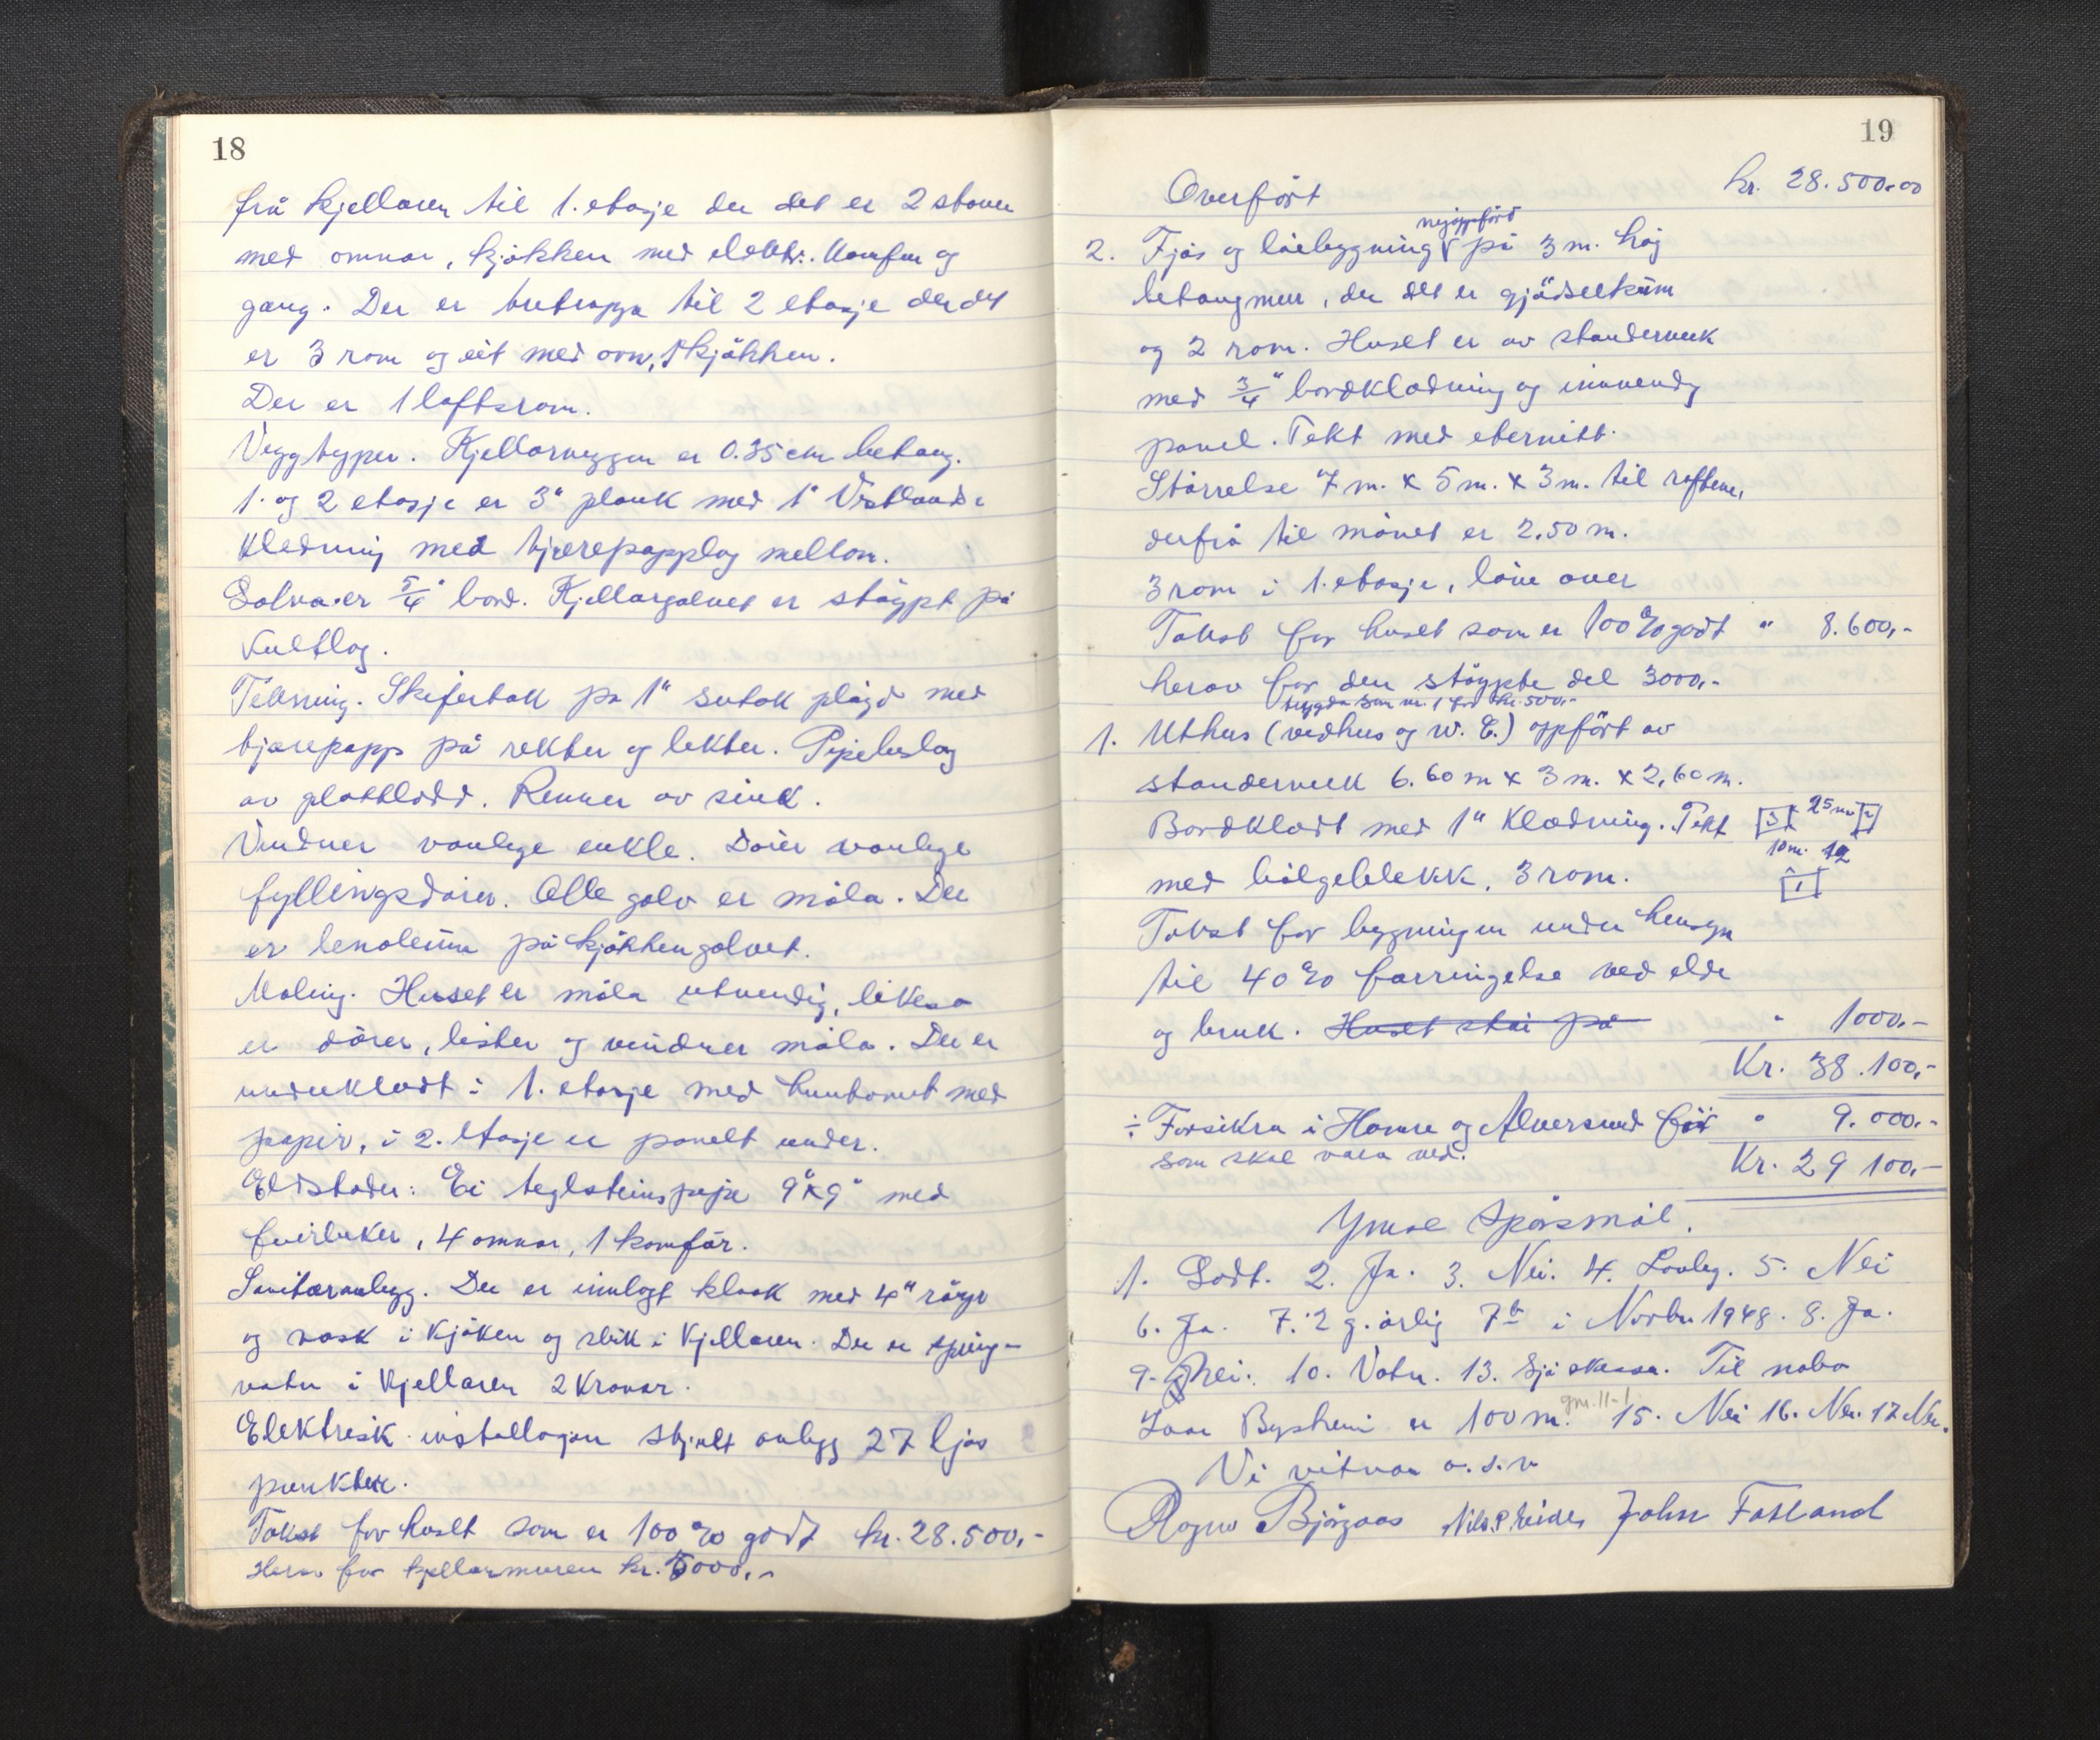 18
frå kjellaren til 1. etasje der det er 2 stover
med omnar, kjøkken med elektr. komfur og
gang. Der er tretrappa til 2 etasje der det
er 3 rom og eit med ovn, 1 kjøkken.
Der er 1 loftsrom.
Veggtyper. Kjellarveggen er 0.35 cm betong.
1. og 2 etasje er 3" plank med 1" Vestlands
kledning med tjærepapplag mellom.
Golva er 5/4" bord. Kjellargolvet er støypt på
kultlag.
Tekning. Skifertak på 1" sutak pløgd med
tjærepapp på rekter og lekter. Pipebeslag
av plattlodd. Renner av sink.
Vinduer vanlege enkle. Dører vanlege
fyllingsdører. Alle golv er måla. Der
er lenoleum på kjøkkengolvet.
Maling. Huset er måla utvendig, likeso
er dører, lister og vinduer måla. Der er
underkledt i 1. etasje med huntonit med
papir, i 2. etasje er panelt under.
Eldstader: Ei teglsteinspipe 9"x9" med
feirluker, 4 omnar, 1 komfør.
Sanitæranlegg. Der er innlagt kloak med 4" røyr
og vask i kjøken og slik i kjellaren. Der er spring-
vatn i kjellaren 2 kranar.
Elektrisk installasjon skjult anlegg 27 ljos
punkter.
Takst for huset som er 100% godt kr. 28.500,-
Herav for kjellarmuren kr. 5000,-
19
Overført kr. 28.500.00
nyoppført
2. Fjøs og løebygning på 3 m. høg
betongmur, der det er gjødselkum
og 2 rom. Huset er av standerverk
med 3/4" bordklædning og innvendig
panel. Tekt med eternitt.
Størrelse 7 m. x 5 m. x 3 m. til raftene,
derfrå til mønet er 2,50 m.
3 rom i 1. etasje, løe over
Takst for huset som er 100% godt " 8.600,-
herav for den støypte del 3000,-
trygda som nr. 1 for kr. 500,-
1. Uthus (vedhus og W.C.) oppført av
standerverk 6.60 m x 3 m. x 2,60 m.
Bordkledt med 1" Klædning. Tekt 3 25 m 2
10 m. 12
med bølgeblekk. 3 rom. 1
Takst for bygningen under hensyn
til 40% forringelse ved elde
og bruk. Huset står på " 1000.-
Kr. 38.100,-
÷ Forsikra i Hamre og Alversund for " 9.000.-
som skal vara ved. Kr. 29 100,-
Ymse spørsmål.
1. Godt. 2. Ja. 3. Nei. 4. Lovleg. 5. Nei
6. Ja. 7. 2 g. årlig i Novbr. 1948. 8. Ja.
9. Nei. 10. Vatn. 13. Sjå skissa. Til nabo
gnr. 11-1
Byshein er 100 m. 15. Nei 16. Nei. 17 Nei.
Vi vitnar o.s.v
Ragnv Bjørgaas Nils P. Eide John Fatland